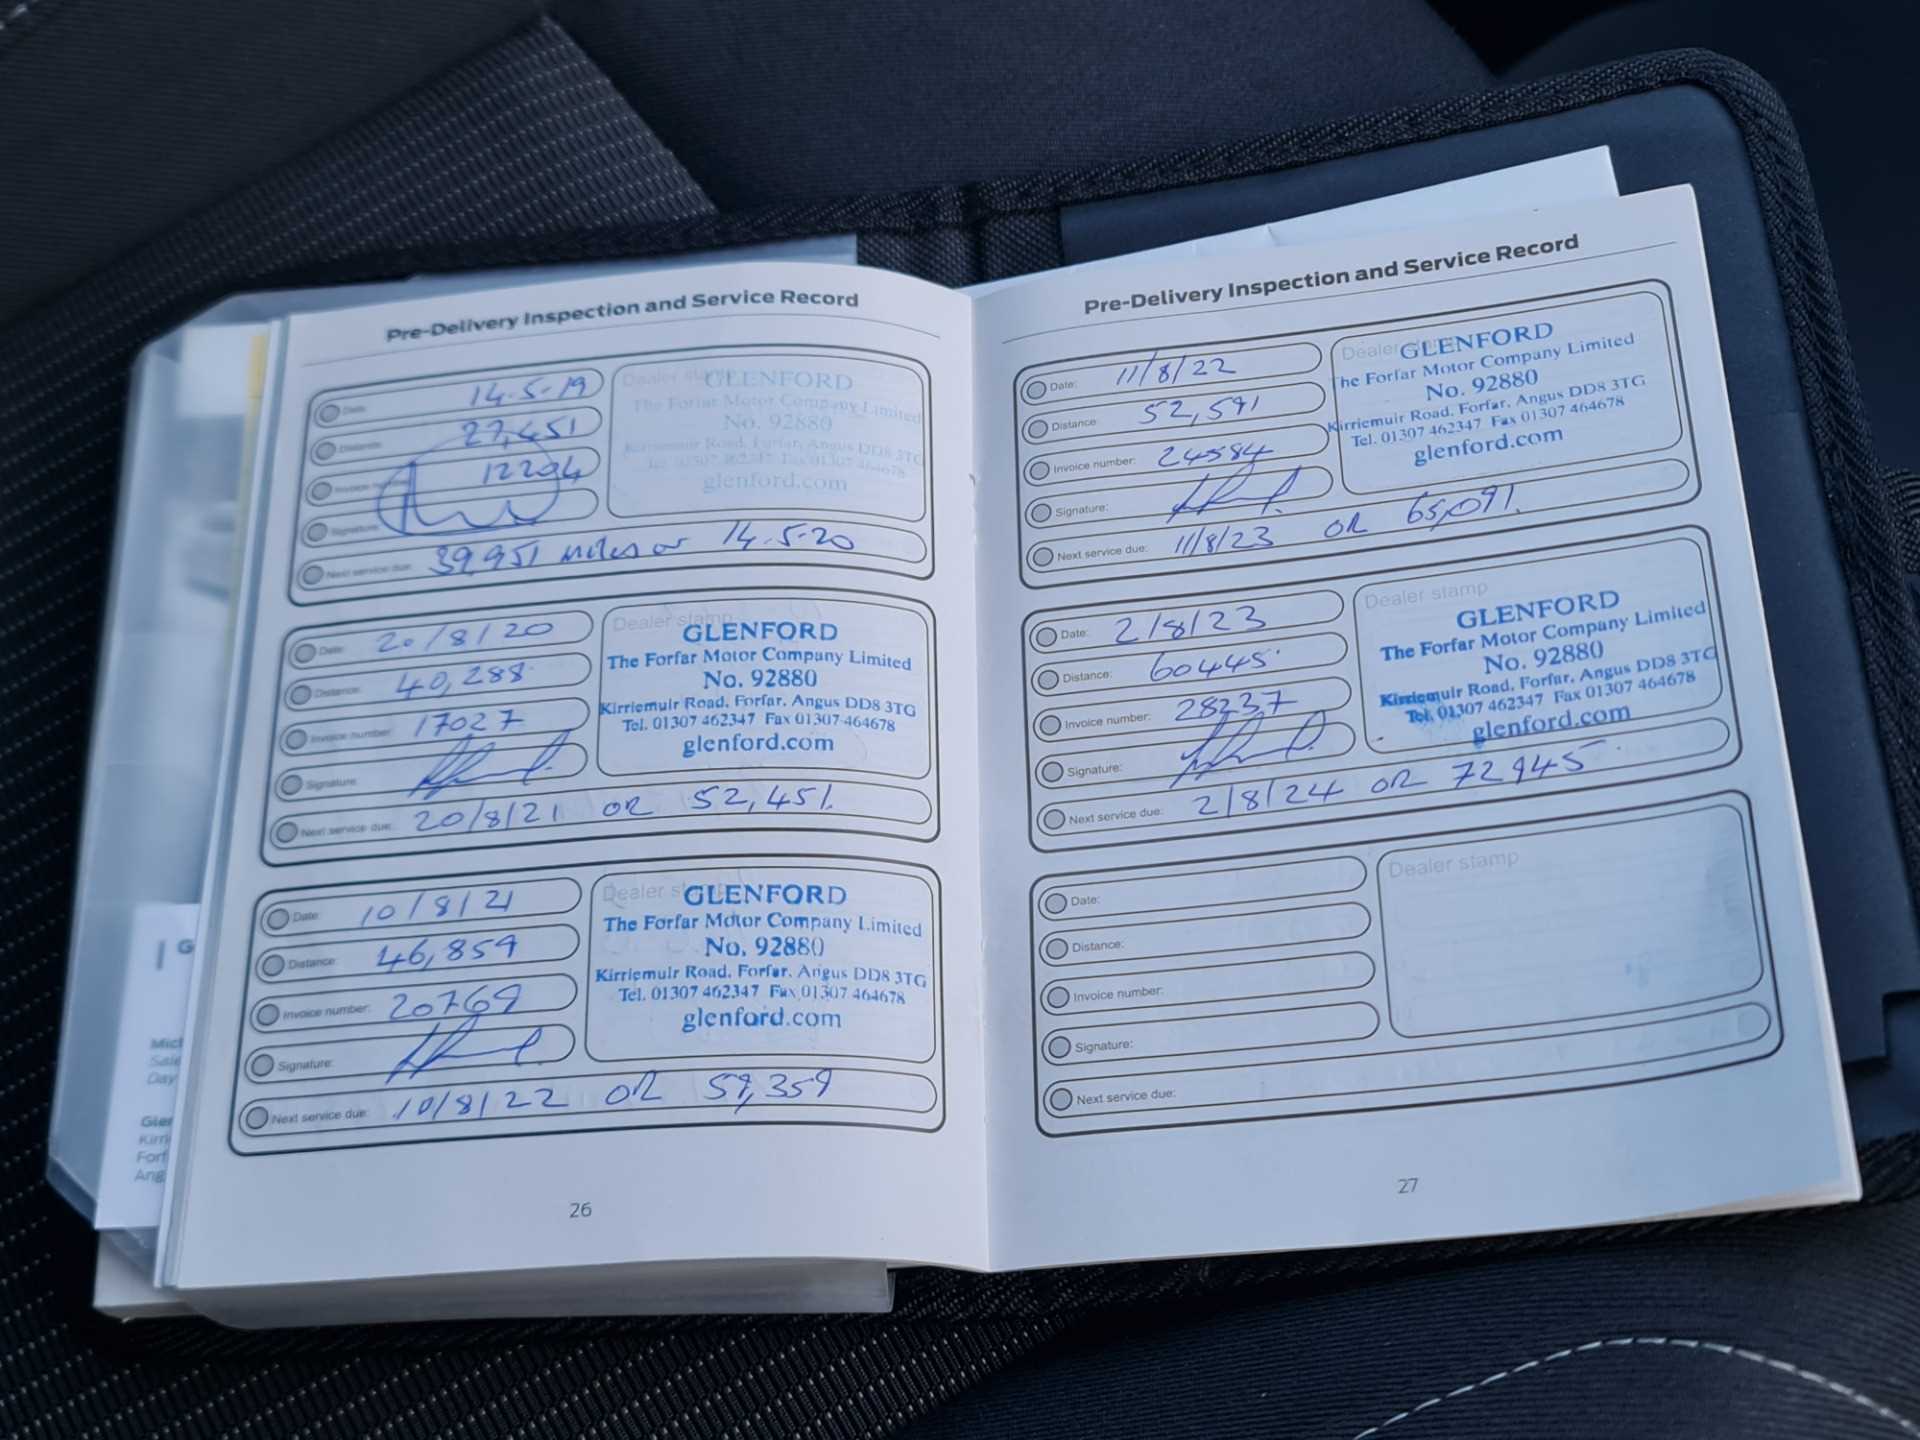 Pre-Delivery Inspection and Service Record
Date: 14.5.19
Distance: 27,451
Invoice number: 12204
Signature:
Next service due: 39,951 miles or 14.5.20
Dealer stamp
GLENFORD
The Forfar Motor Company Limited
No. 92880
Kirriemuir Road, Forfar, Angus DD8 3TG
Tel. 01307 462347 Fax 01307 464678
glenford.com
Date: 20/8/20
Distance: 40,288
Invoice number: 17027
Signature:
Next service due: 20/8/21 OR 52,451
Dealer stamp
GLENFORD
The Forfar Motor Company Limited
No. 92880
Kirriemuir Road, Forfar, Angus DD8 3TG
Tel. 01307 462347 Fax 01307 464678
glenford.com
Date: 10/8/21
Distance: 46,859
Invoice number: 20769
Signature:
Next service due: 10/8/22 OR 59,359
Dealer stamp
GLENFORD
The Forfar Motor Company Limited
No. 92880
Kirriemuir Road, Forfar, Angus DD8 3TG
Tel. 01307 462347 Fax 01307 464678
glenford.com
26
Pre-Delivery Inspection and Service Record
Date: 11/8/22
Distance: 52,591
Invoice number: 24584
Signature:
Next service due: 11/8/23 OR 65,091.
Dealer stamp
GLENFORD
The Forfar Motor Company Limited
No. 92880
Kirriemuir Road, Forfar, Angus DD8 3TG
Tel. 01307 462347 Fax 01307 464678
glenford.com
Date: 2/8/23
Distance: 60445
Invoice number: 28237
Signature:
Next service due: 2/8/24 OR 72945
Dealer stamp
GLENFORD
The Forfar Motor Company Limited
No. 92880
Kirriemuir Road, Forfar, Angus DD8 3TG
Tel. 01307 462347 Fax 01307 464678
glenford.com
Date:
Distance:
Invoice number:
Signature:
Next service due:
Dealer stamp
27